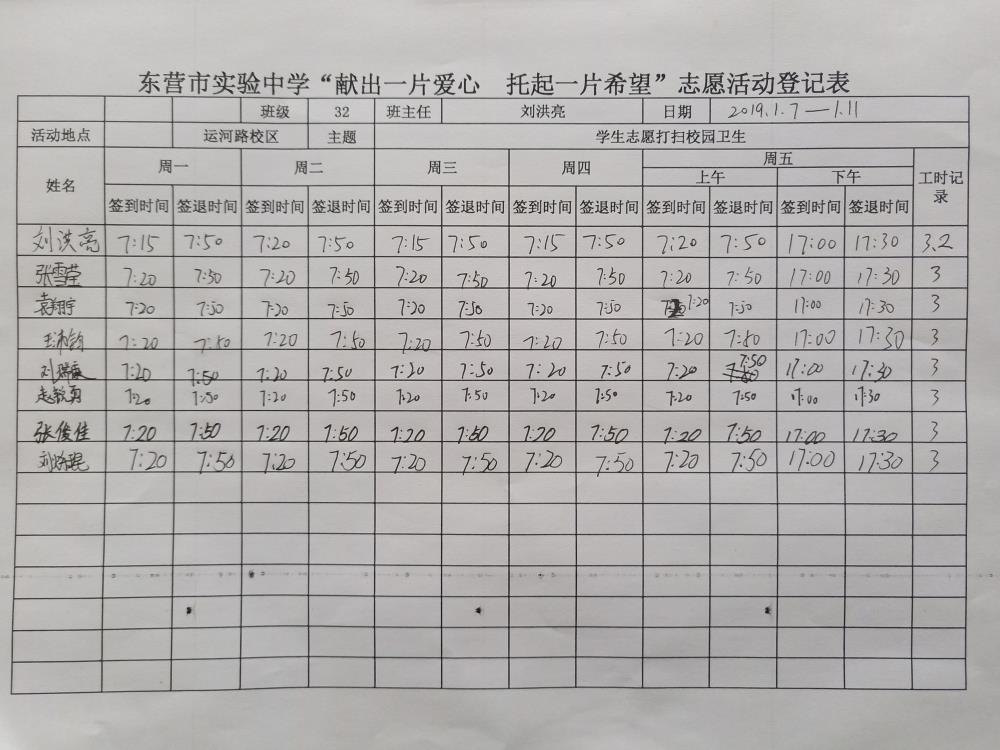 东营市实验中学“献出一片爱心 托起一片希望”志愿活动登记表
班级 32 班主任 刘洪亮 日期 2019.1.7—1.11
活动地点 运河路校区 主题 学生志愿打扫校园卫生
姓名 周一 周二 周三 周四 周五 工时记录
上午 下午
签到时间 签退时间 签到时间 签退时间 签到时间 签退时间 签到时间 签退时间 签到时间 签退时间 签到时间 签退时间
刘洪亮 7:15 7:50 7:20 7:50 7:15 7:50 7:15 7:50 7:20 7:50 17:00 17:30 3.2
张雪莹 7:20 7:50 7:20 7:50 7:20 7:50 7:20 7:50 7:20 7:50 17:00 17:30 3
袁翔宇 7:20 7:50 7:20 7:50 7:20 7:50 7:20 7:50 7:20 7:50 17:00 17:30 3
7:20 7:50 7:20 7:50 7:20 7:50 7:20 7:50 7:20 7:50 17:00 17:30 3
刘 7:20 7:50 7:20 7:50 7:20 7:50 7:20 7:50 7:20 7:50 17:00 17:30 3
7:20 7:50 7:20 7:50 7:20 7:50 7:20 7:50 7:20 7:50 17:00 17:30 3
张俊佳 7:20 7:50 7:20 7:50 7:20 7:50 7:20 7:50 7:20 7:50 17:00 17:30 3
刘 7:20 7:50 7:20 7:50 7:20 7:50 7:20 7:50 7:20 7:50 17:00 17:30 3